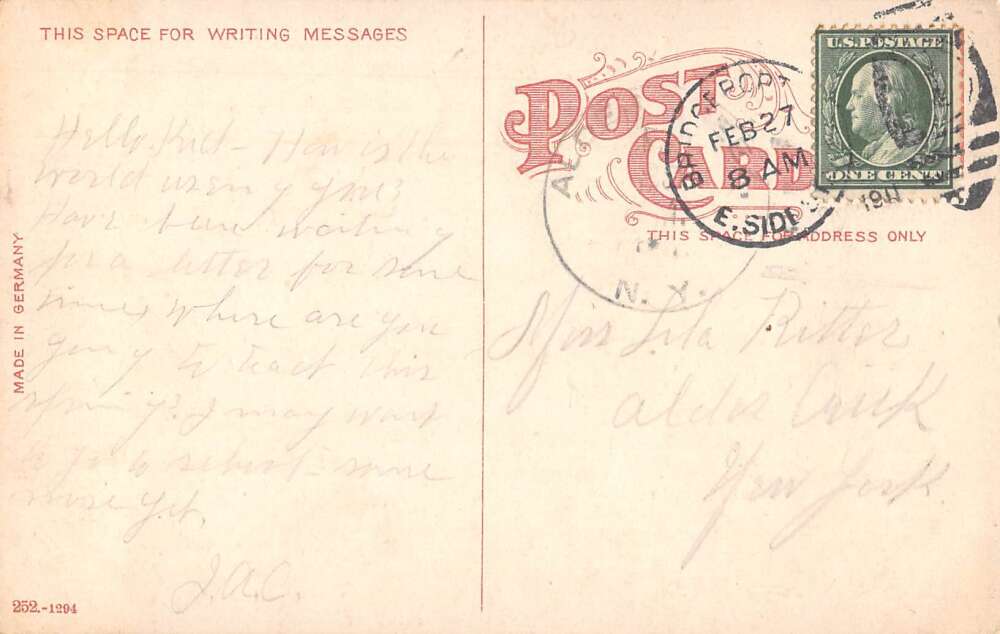 THIS SPACE FOR WRITING MESSAGES
Hello Kid – How is the
world using you?
Have been waiting
for a letter for some
time. Where are you
going to teach this
spring? I may want
to go to school some
more yet.
J.A.C.
MADE IN GERMANY
252.-1294
POST CARD
THIS SPACE FOR ADDRESS ONLY
BRIDGEPORT
FEB 27
8 AM
E. SIDE
191
N. Y.
U.S. POSTAGE
ONE CENT
Miss Lila Ritter
Alder Creek
New York